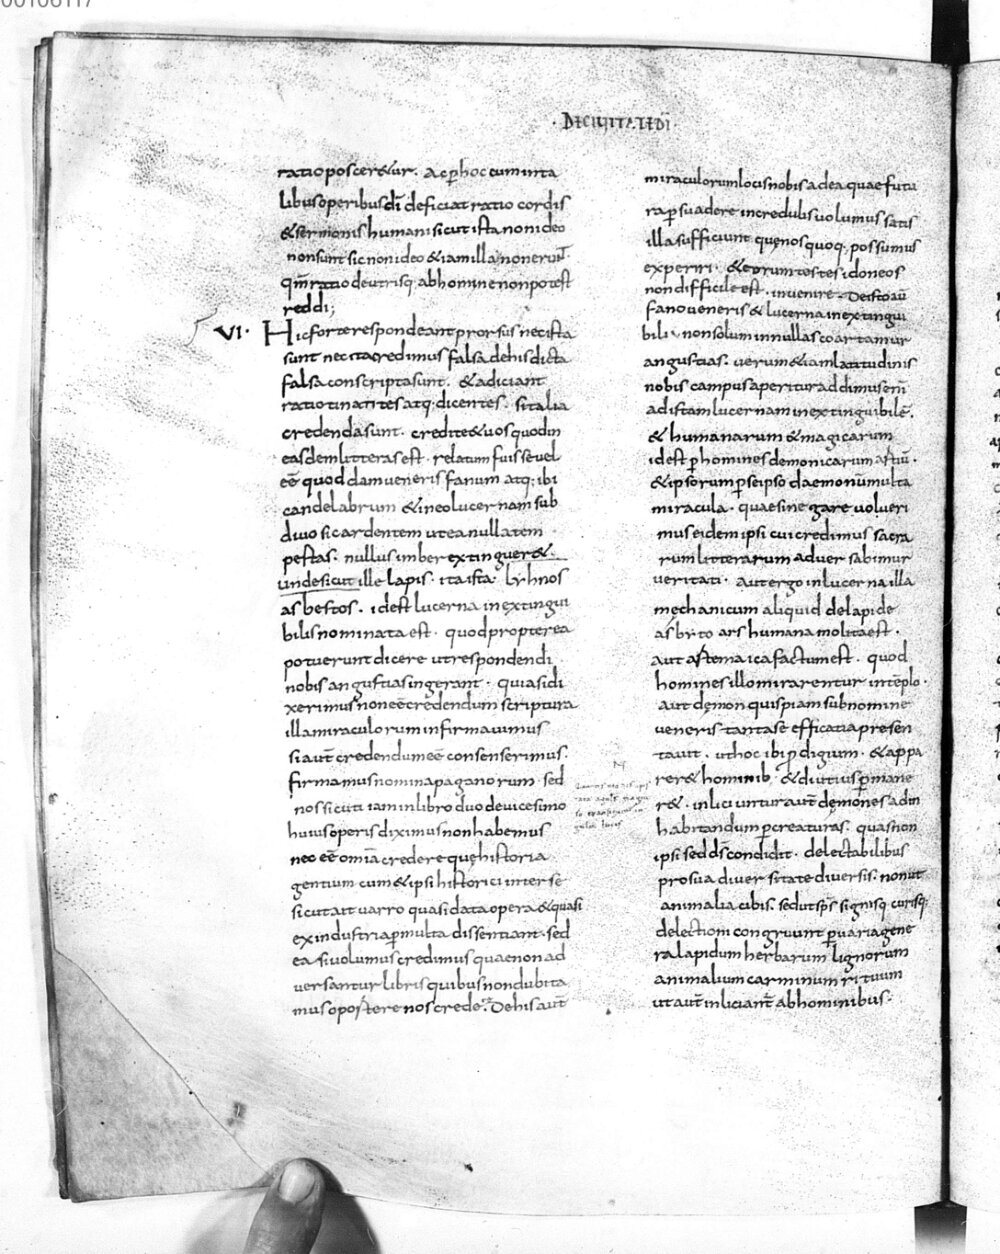 00106117
· DECIUITATEDĪ ·
ratio poscer&ur. Ac p hoc cum in ta
libus operibus dī deficiat ratio cordis
& sermonis humani sicut ista non ideo
non sunt sic non ideo & iam illa non erunT
qm̄ ratio de utrisq; ab homine non potest
reddi;
VI· Hic forte respondeant prorsus nec ista
sunt nec ita credimus falsa de his dicta
falsa conscripta sunt. & adiciant
ratiotinantes atq; dicentes. si talia
credenda sunt. credite & uos quod in
easdem litteras est. relatum fuisse uel
eē quoddam ueneris fanum atq; ibi
candelabrum & in eo lucernam sub
diuo sic ardentem ut ea nulla tem
pestas. nullus imber extinguer&.
unde sicut ille lapis. ita ista. lychnos
asbestos. idest lucerna inextingui
bilis nominata est. quod propterea
potuerunt dicere ut respondendi
nobis angustias ingerant. quia si di
xerimus non eē credendum scriptura
illa miraculorum infirmauimus
si aut̄ credendum eē consenserimus.
firmamus nomina paganorum. sed
nos sicuti iam in libro duodeuicesimo
huius operis diximus non habemus
nec eē omīa credere que historia
gentium cum & ipsi historici inter se
sicut ait uarro quasi data opera & quasi
ex industria p multa dissentiant. sed
ea si uolumus credimus quae non ad
uersantur libris quibus non dubita
mus oportere nos crede. De his aut̄
miraculorum locis nobis ad ea quae futu
ra p suadere incredulis uolumus satis
illa sufficiunt que nos quoq. possumus
experiri. & eorum testes idoneos
non difficile est. inuenire. De isto aū
fano ueneris & lucerna inextingui
bili. non solum in nullas coartamur
angustias. uerum & iam latitudinis
nobis campus aperitur addimus enī
ad istam lucernam inextinguibilē.
& humanarum & magicarum
idest p homines demonicarum artiū.
& ipsorum p se ipso daemonū multa
miracula. quae si negare uolueri
mus eidem ipsi cui credimus sacra
rum litterarum aduersabimur
ueritati. aut ergo in lucerna illa
mechanicum aliquid de lapide
asbyto ars humana molita est.
aut arte magica factum est. quod
homines illo mirarentur in tēplo.
aut demon quispiam sub nomine
ueneris tanta se efficatia presen
tauit. ut hoc ibi p digium. & appa
rer& hominib. & diutius p mane
r&. inliciuntur aut̄ demones ad in
habitandum p creaturas. quas non
ipsi sed ds̄ condidit. delectabilibus
pro sua diuersitate diuersis. non ut
animalia cibis. sed ut sp̄s signis q cuiusq;
delectioni congruunt p uaria gene
ra lapidum herbarum lignorum
animalium carminum rituum
ut aut̄ inliciant̄ ab hominibus.